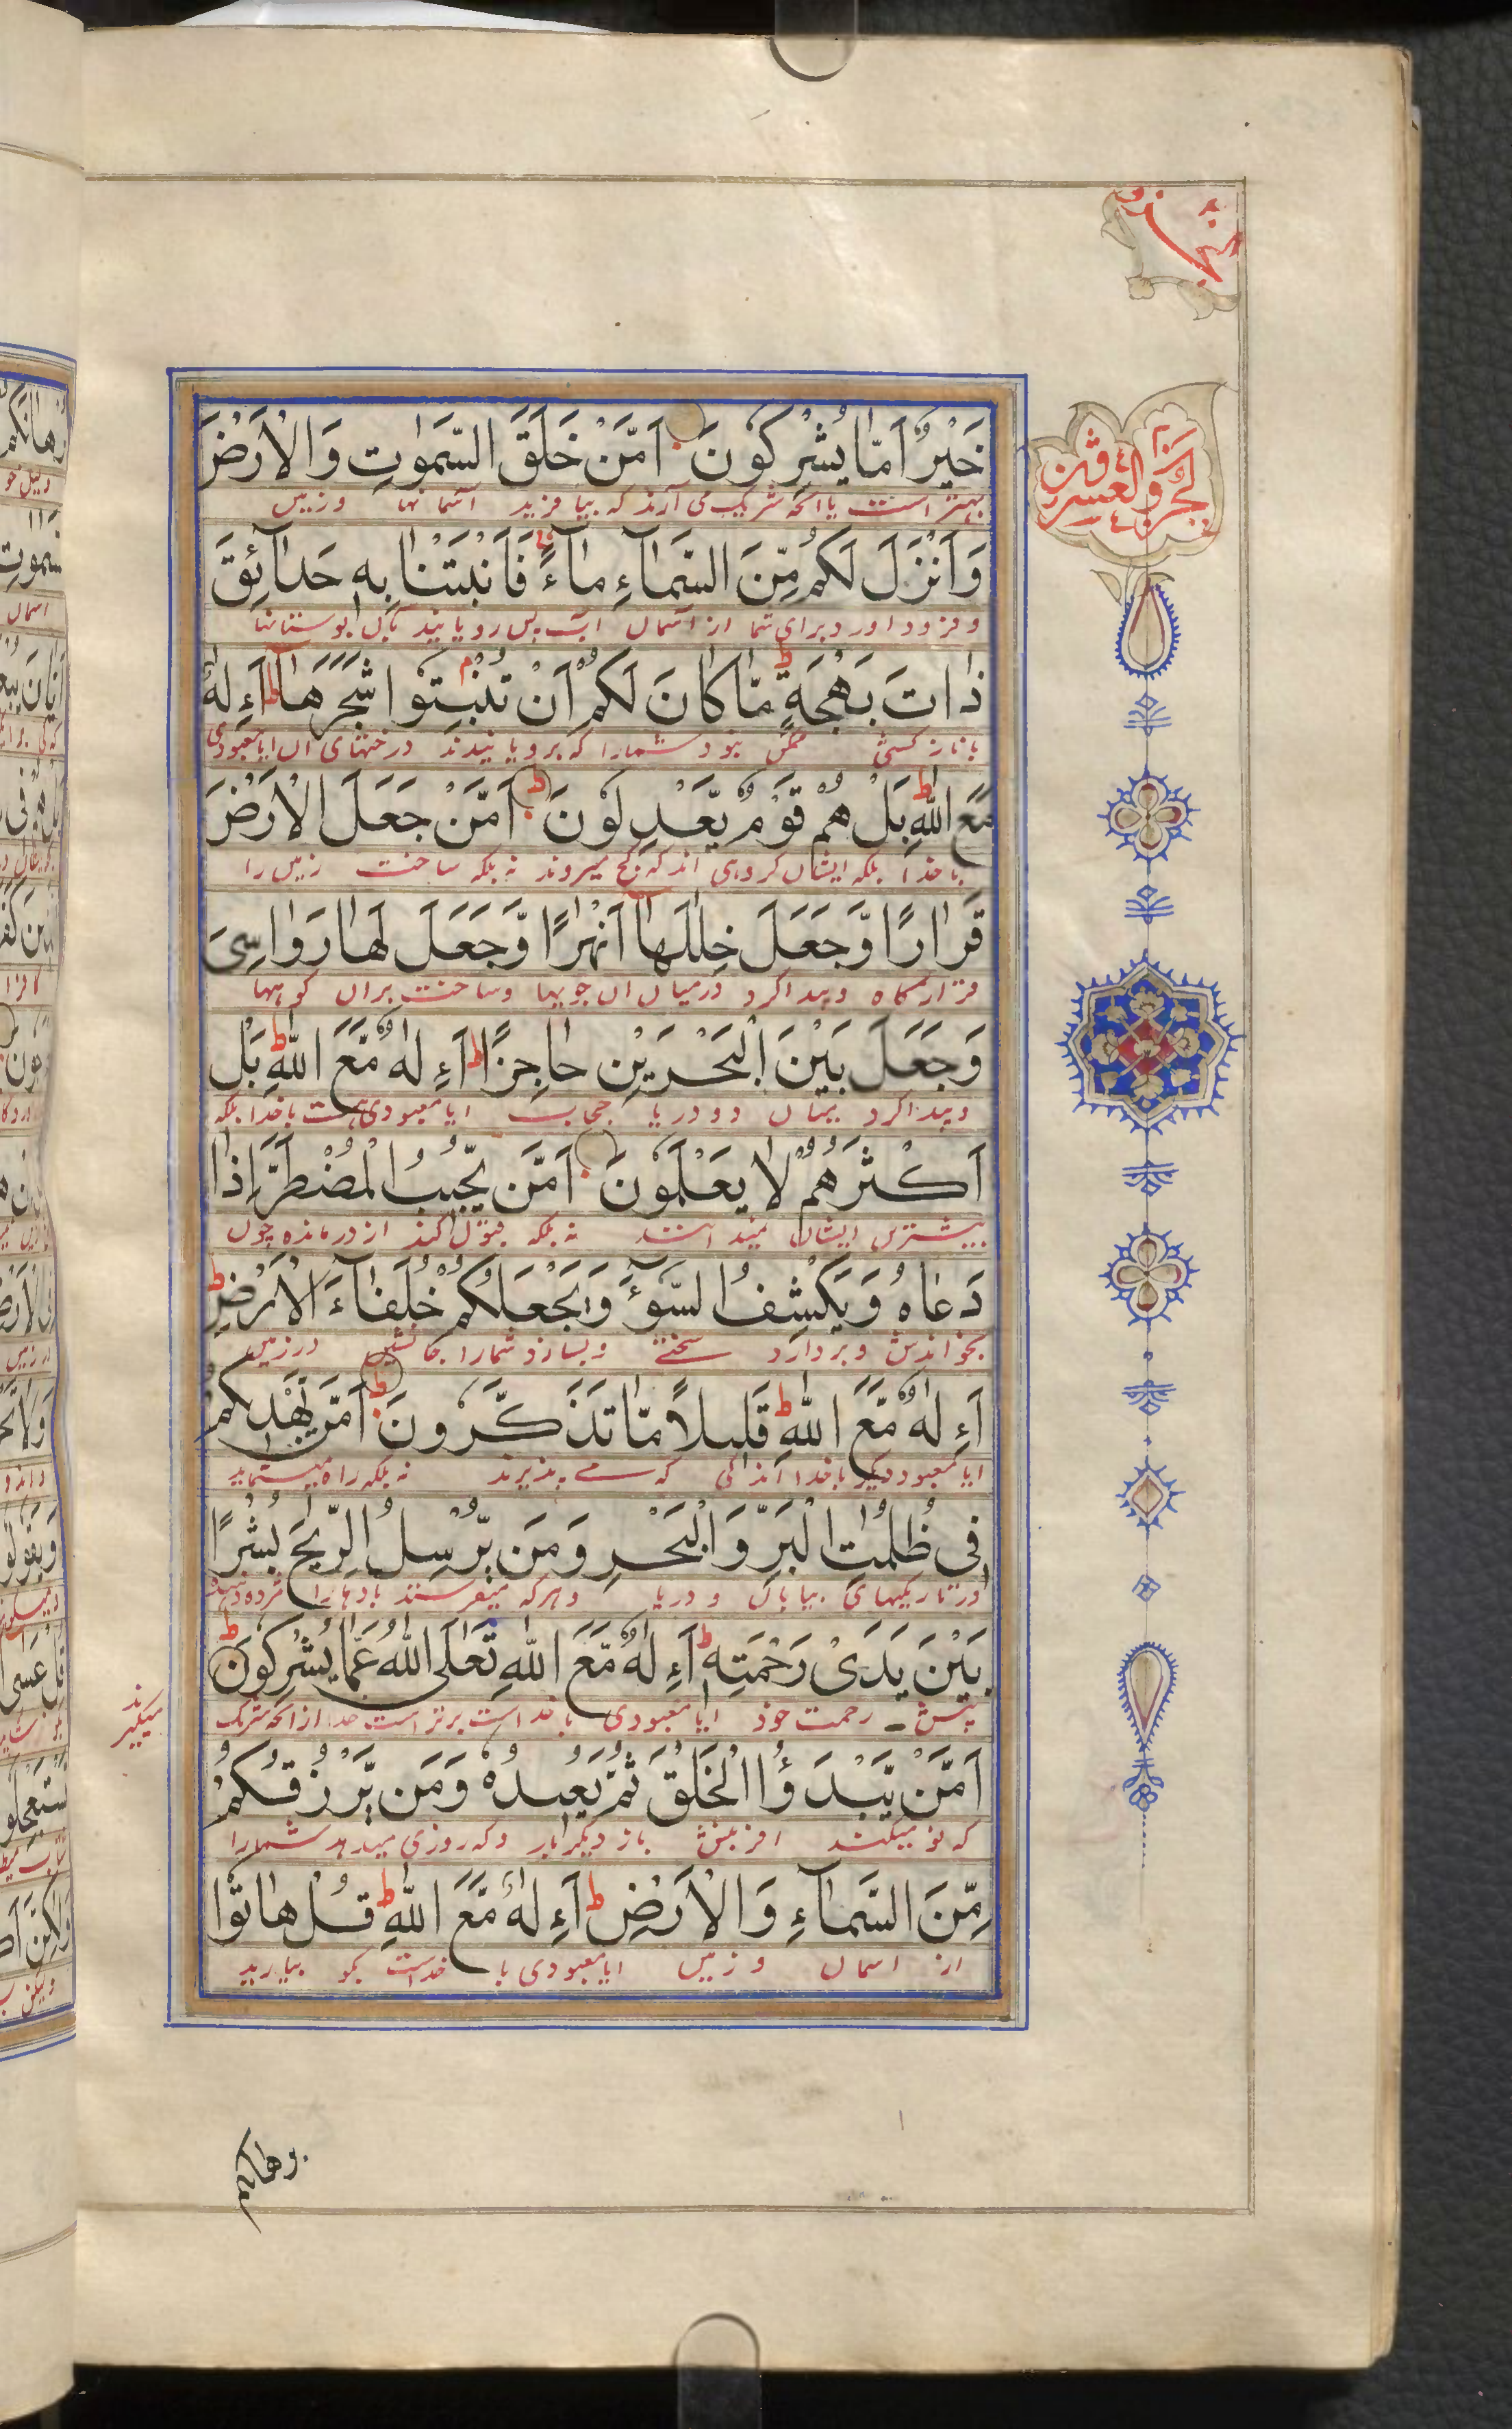 الجزو العشرون
خَيْرٌ اَمَّا يُشْرِكُونَ اَمَّنْ خَلَقَ السَّمٰوٰتِ وَالْاَرْضَ
بهتر است یا آنچه شریک می آرند که بیافرید آسمانها و زمین
وَاَنْزَلَ لَكُمْ مِّنَ السَّمَآءِ مَآءً فَاَنْبَتْنَا بِهٖ حَدَآئِقَ
و فرود آورد برای شما از آسمان آب پس رویانید بآن بوستانها
ذَاتَ بَهْجَةٍ مَّا كَانَ لَكُمْ اَنْ تُنْبِتُوا شَجَرَهَا ءَاِلٰهٌ
نبود شمارا که برویانیدند درختهای آن ایا معبودی
مَّعَ اللّٰهِ بَلْ هُمْ قَوْمٌ يَّعْدِلُونَ اَمَّنْ جَعَلَ الْاَرْضَ
با خدا بلکه ایشان گروهی اند که کج میروند نه بلکه ساخت زمین را
قَرَارًا وَّجَعَلَ خِلٰلَهَا اَنْهٰرًا وَّجَعَلَ لَهَا رَوَاسِىَ
قرارگاه و پیدا کرد درمیان آن جویها و ساخت بران کوهها
وَجَعَلَ بَيْنَ الْبَحْرَيْنِ حَاجِزًا ءَاِلٰهٌ مَّعَ اللّٰهِ بَلْ
و پیدا کرد میان دو دریا حجاب ایا معبودی هست با خدا بلکه
اَكْثَرُهُمْ لَا يَعْلَمُونَ اَمَّنْ يُّجِيبُ الْمُضْطَرَّ اِذَا
بیشترین ایشان نمیدانند نه بلکه قبول کند از درمانده چون
دَعَاهُ وَيَكْشِفُ السُّوٓءَ وَيَجْعَلُكُمْ خُلَفَآءَ الْاَرْضِ
بخواندش و بردارد سختی و بسازد شمارا جانشین در زمین
ءَاِلٰهٌ مَّعَ اللّٰهِ قَلِيلًا مَّا تَذَكَّرُونَ اَمَّنْ يَّهْدِيكُمْ
ایا معبود دیگر با خدا اندکی که مے پذیرند نه بلکه راه مینماید
فِى ظُلُمٰتِ الْبَرِّ وَالْبَحْرِ وَمَن يُّرْسِلُ الرِّيٰحَ بُشْرًا
در تاریکیهای بیابان و دریا و هر که میفرستد بادها را مژده دهنده
بَيْنَ يَدَىْ رَحْمَتِهٖ ءَاِلٰهٌ مَّعَ اللّٰهِ تَعٰلَى اللّٰهُ عَمَّا يُشْرِكُونَ
پیش رحمت خود ایا معبودی با خداست برتر است خدا از آنچه شریک
میگیرند
اَمَّنْ يَّبْدَؤُا الْخَلْقَ ثُمَّ يُعِيدُهٗ وَمَن يَّرْزُقُكُمْ
که نو میکند آفرینش باز دیگر بار و که روزی میدهد شمارا
مِّنَ السَّمَآءِ وَالْاَرْضِ ءَاِلٰهٌ مَّعَ اللّٰهِ قُلْ هَاتُوا
از آسمان و زمین ایا معبودی با خداست بگو بیارید
برهانكم